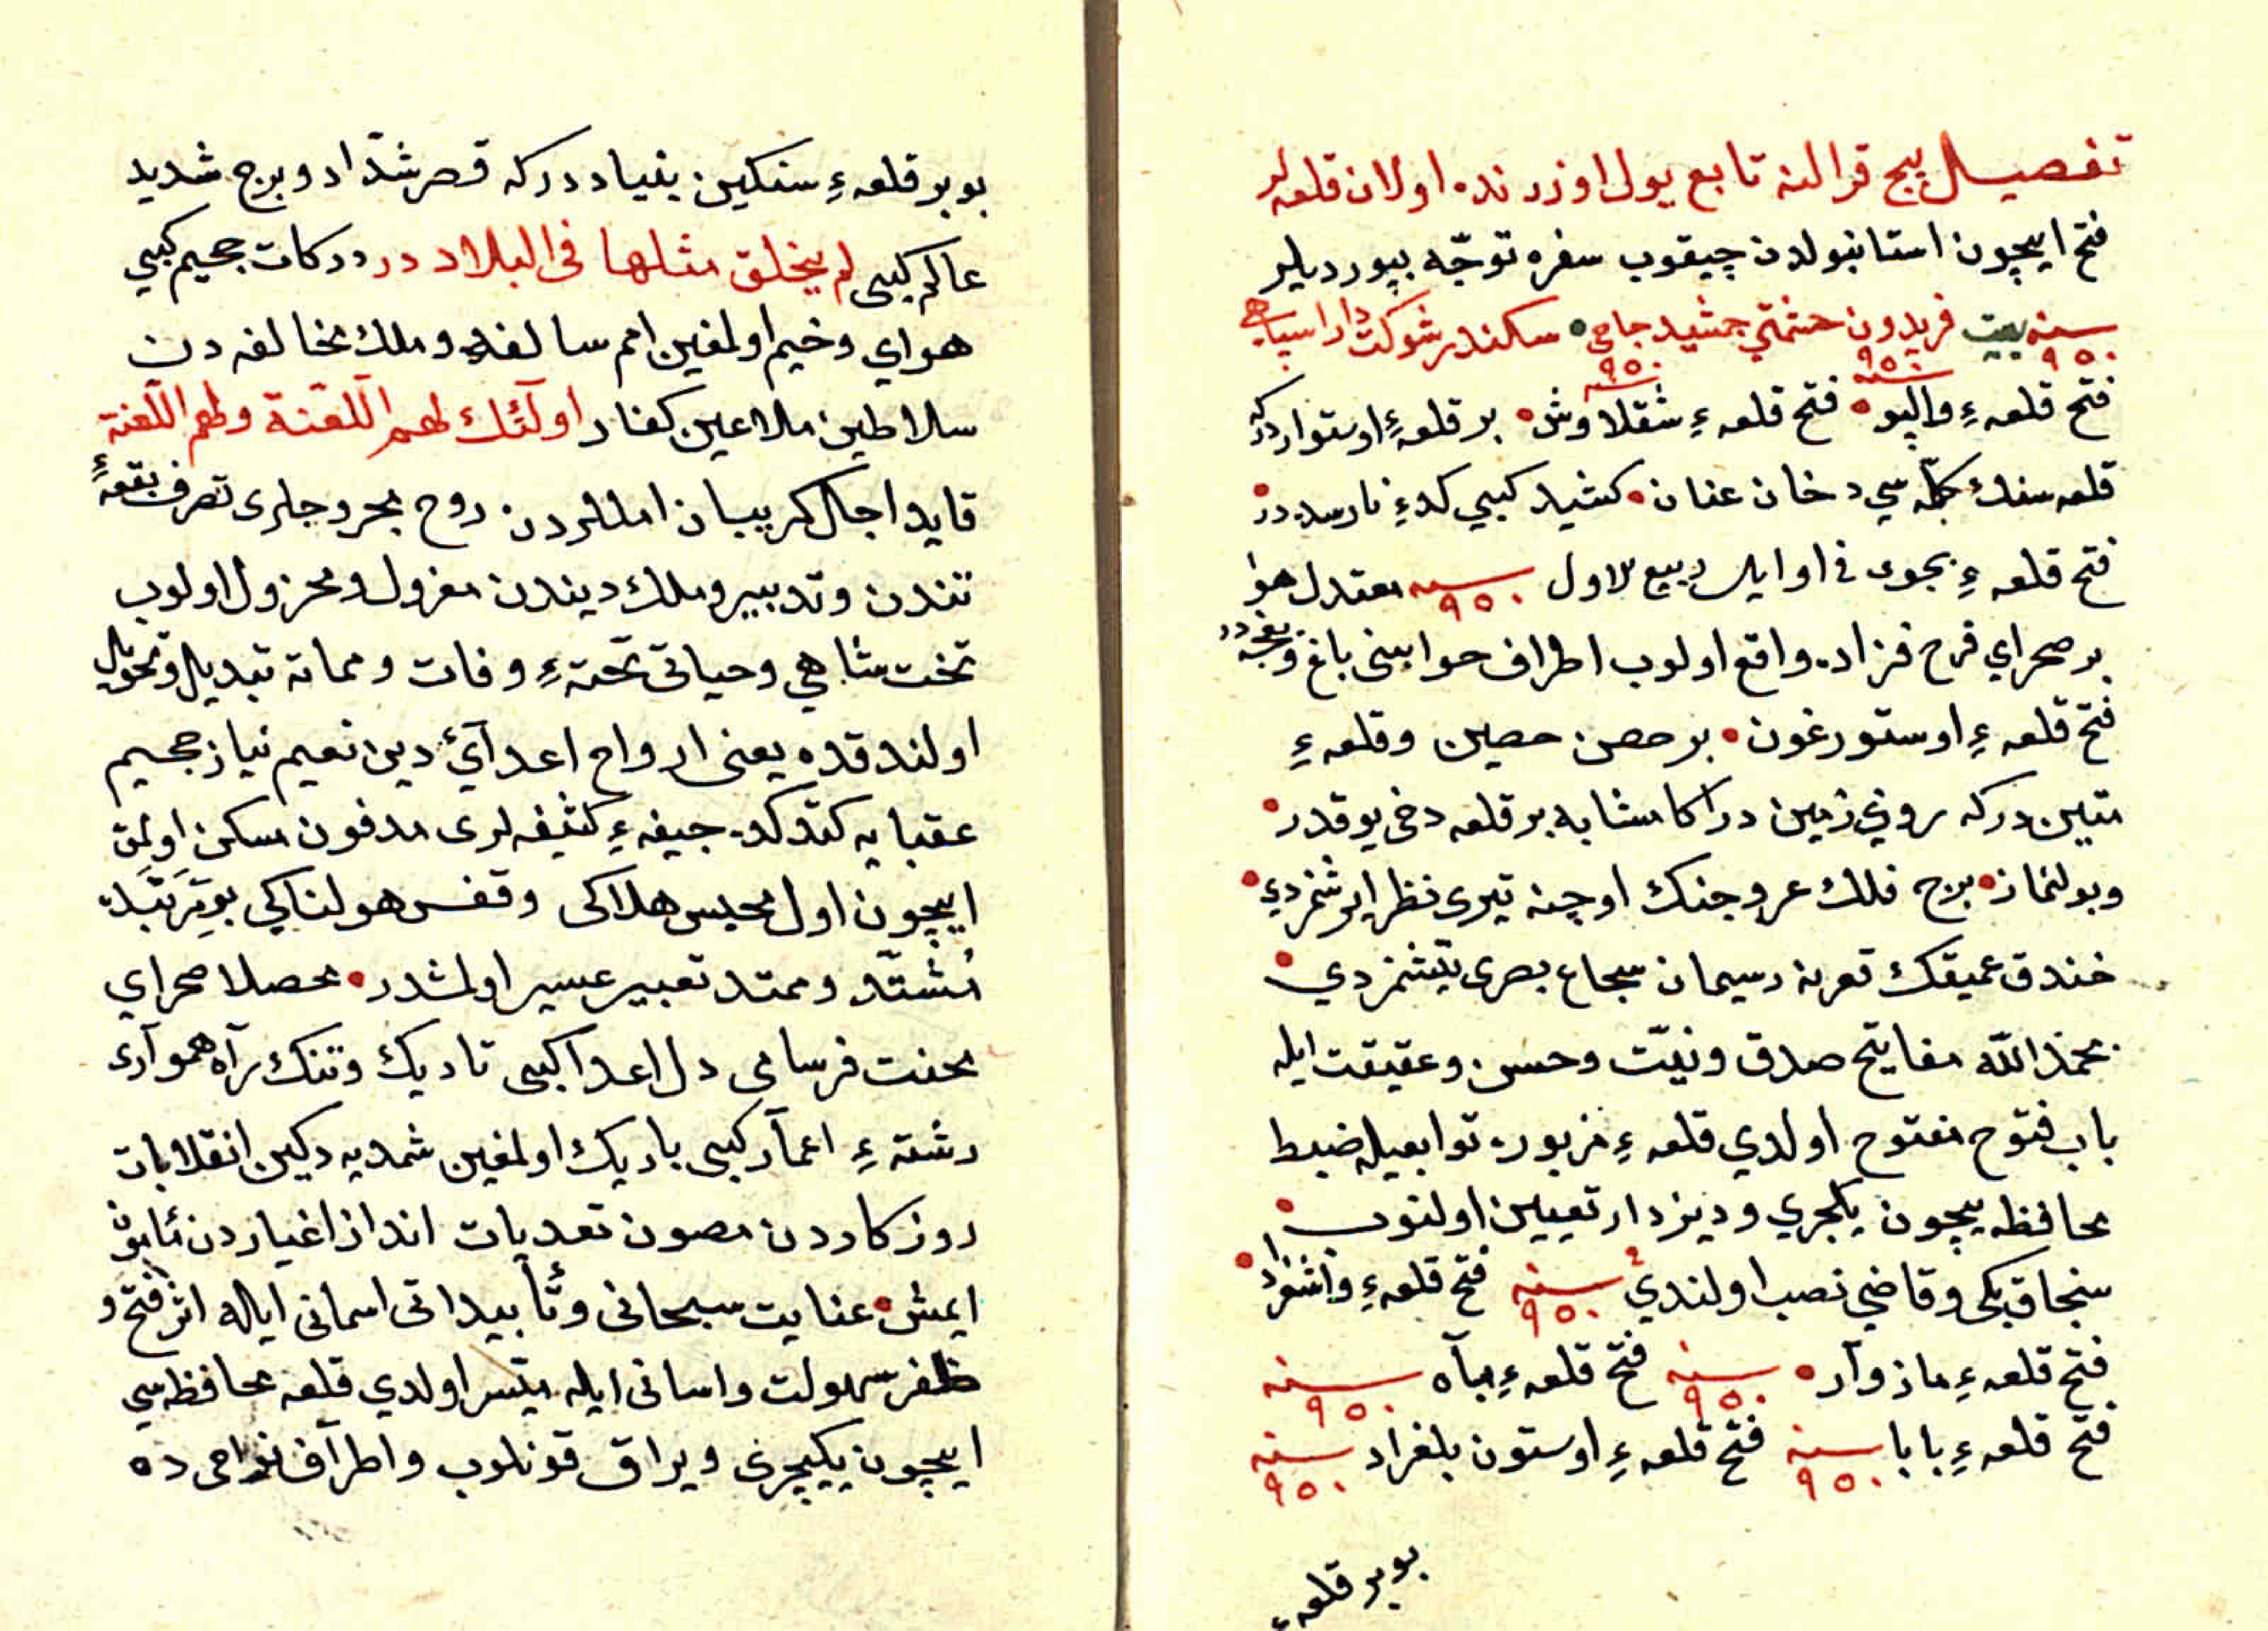 تفصيل بيج قرالنه تابع يول اوزرنده اولان قلعه لر
فتح ايچون استانبولدن چيقوب سفره توجّه بيورديلر
سنه ٩٥٠ بيت فريدون حشمتي جمشيد جامى • سكندر شوكت دارا سپاهى
سنه ٩٥٠ سنه ٩٥٠
فتح قلعهءِ والپو • فتح قلعهءِ شقلاوش • بر قلعهءِ اوستواردركه
قلعه سنك جمله سي دخان عنان • كشيد كبي كدءِ نارسددر •
فتح قلعهءِ بجوى فى اوايل ربيع لاول سنه ٩٥٠ معتدل هوا
بر صحراي فرح فزاده واقع اولوب اطراف حوابينى باغ وبغچه در
فتح قلعهءِ اوستورغون • بر حصن حصين وقلعهءِ
متين دركه روي زمين دراكا مشابه بر قلعه دخى يوقدر •
وبولنماز • برج فلك عروجنك اوجنه تيرى نظر ايرشمزدي •
خندق عميقك تعرنه رسيمان سجاع بصرى يتشمزدي •
بحمد اللّه مفاتيح صدق ونيّت وحسن وعقيقت ايله
باب فتوح مفتوح اولدي قلعهءِ مزبوره توابعيله ضبط
محافظه يچون يكجري وديزدار تعيين اولنوب •
سنجاق بكى وقاضي نصب اولندي سنه ٩٥٠ فتح قلعهءِ واشغراد •
فتح قلعهءِ ماذوآر • سنه ٩٥٠ فتح قلعهءِ مبآه سنه ٩٥٠
فتح قلعهءِ بابا سنه ٩٥٠ فتح قلعهءِ اوستون بلغراد سنه ٩٥٠
بوبر قلعهءِ
بوبر قلعهءِ سنكين بنياددركه قصر شدّاد وبرج شديد
عالم كبى لم يخلق مثلها فى البلاد در دركات جحيم كبي
هواي وخيم اولمغين امم سالفه وملك مخالفه دن
سلاطين ملاعين كفار اولٓئك لهم اللّعنة ولهم اللّعنة
قايد اجال كريبان املاردن روح مجروحلرى تصرف بقعهءِ
تندن وتدبير وملك ديندن معزول ومخزول اولوب
تخت شاهي وحياتى تختهءِ وفات ومماته تبديل وتحويل
اولندقده يعنى ارواح اعدآئ دين نعيم نياز جحيم
عقبايه كتدكده جيفهءِ كثيفه لرى مدفون مسكن اولمق
ايچون اول محبس هلاكى وقفس هولناكي بو ترتبله
مُشتّد وممتد تعبير عسير اولمشدر • محصلا صحراي
محنت فرساى دل اعدا كبى تاريك وتنك رآه همواری
رشتهءِ اعمآر كبى باريك اولمغين شمديه دكين انقلابات
روزكاردن مصون تعديات انداز اغياردن مأمون
ايمش • عنايت سبحانى وتأييداتى اسمانى ايله اثر فتح و
ظفر سهولت واسانى ايله ميّسر اولدي قلعه محافظه سي
ايچون يكيچرى ويراق قونلوب واطرآف نواحى ده